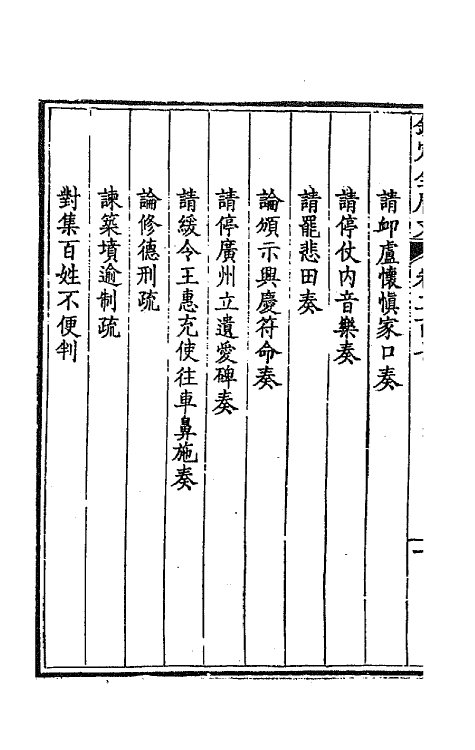 請卹盧懷愼家口奏
請停仗内音樂奏
請罷悲田奏
論頒示興慶符命奏
請停廣州立遺愛碑奏
請緩令王惠充使往車鼻施奏
論修德刑疏
諫築墳逾制疏
對集百姓不便判